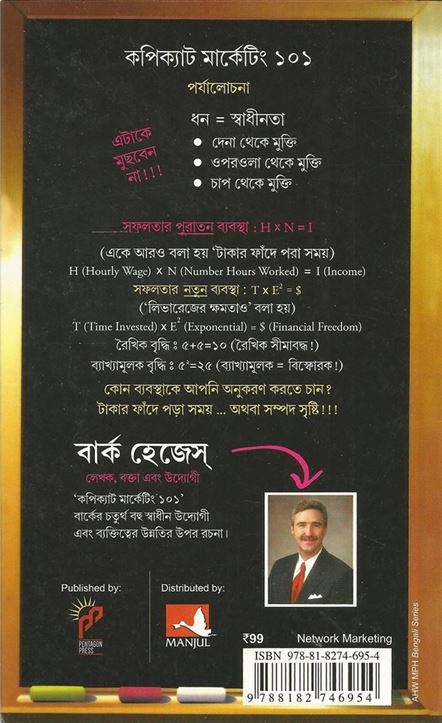 কপিক্যাট মার্কেটিং ১০১
পর্যালোচনা
ধন = স্বাধীনতা
এটাকে
মুছবেন
না!!!
• দেনা থেকে মুক্তি
• ওপরওলা থেকে মুক্তি
• চাপ থেকে মুক্তি
সফলতার পুরাতন ব্যবস্থা : H x N = I
(একে আরও বলা হয় 'টাকার ফাঁদে পরা সময়)
H (Hourly Wage) x N (Number Hours Worked) = I (Income)
সফলতার নতুন ব্যবস্থা : T x E² = $
('লিভারেজের ক্ষমতাও' বলা হয়)
T (Time Invested) x E² (Exponential) = $ (Financial Freedom)
রৈখিক বৃদ্ধি : ৫+৫=১০ (রৈখিক সীমাবদ্ধ!)
ব্যাখ্যামূলক বৃদ্ধি : ৫²=২৫ (ব্যাখ্যামূলক = বিস্ফোরক!)
কোন ব্যবস্থাকে আপনি অনুকরণ করতে চান?
টাকার ফাঁদে পড়া সময় ... অথবা সম্পদ সৃষ্টি!!!
বার্ক হেজেস্
লেখক, বক্তা এবং উদ্যোগী
'কপিক্যাট মার্কেটিং ১০১'
বার্কের চতুর্থ বহু স্বাধীন উদ্যোগী
এবং ব্যক্তিত্বের উন্নতির উপর রচনা।
Published by:
PENTAGON
PRESS
Distributed by:
MANJUL
₹99
Network Marketing
ISBN 978-81-8274-695-4
9 788182 746954
AHW MPH Bengali Series